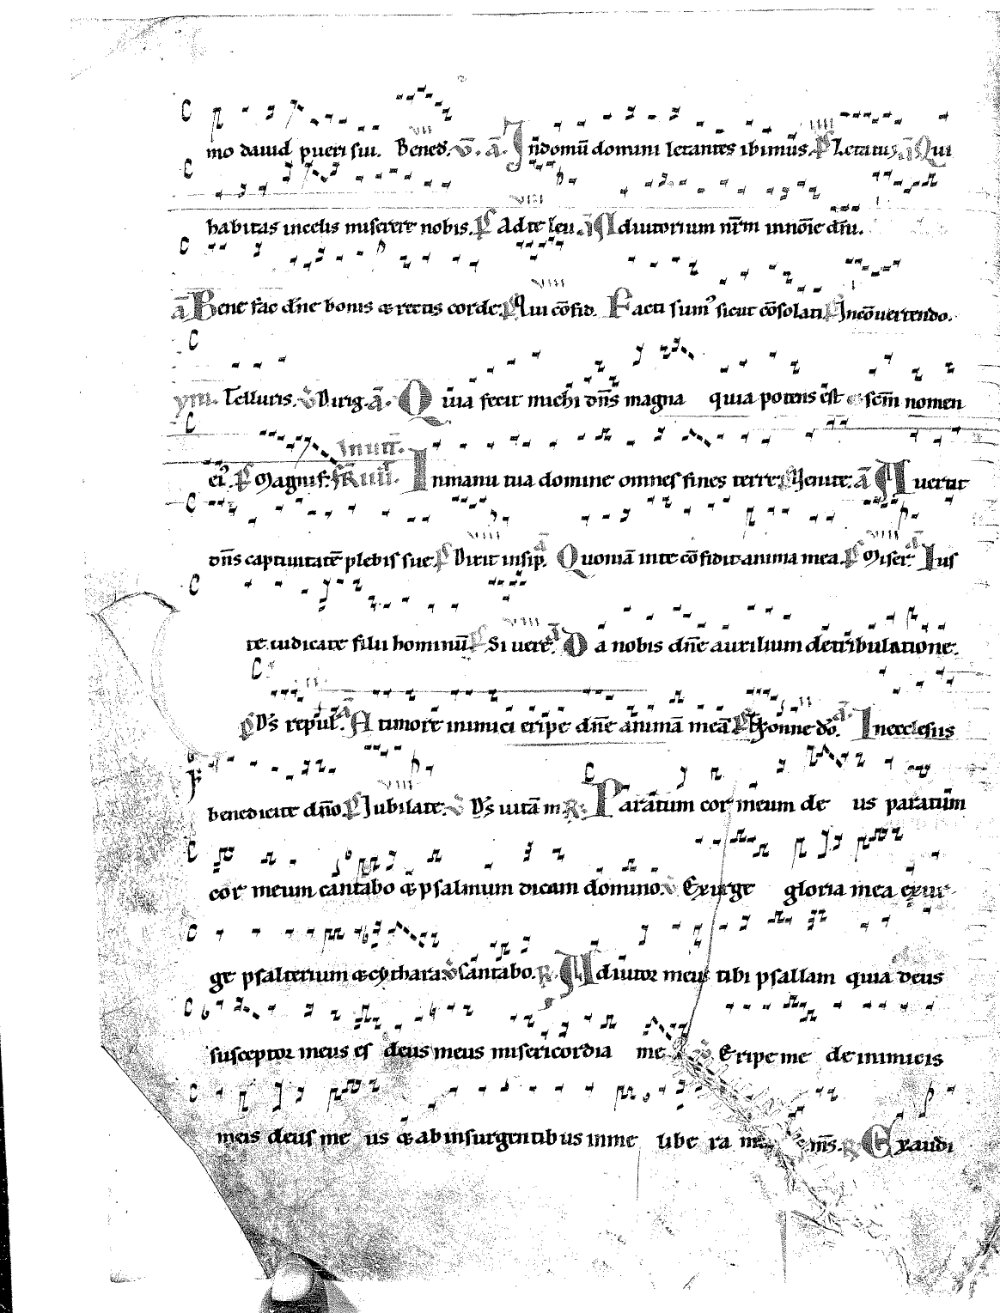 mo dauid pueri sui. Bened̄. V̄. ā. Jn domū domini letantes ibimus. ps Letatus. ā Qui
habitas in celis miserere nobis. ps Ad te leu. ā Adiutorium nr̄m in nōīe dn̄i.
ā Bene fac dn̄e bonis & rectis corde. ps Qui cōfid. Facti sum᾽ sicut cōsolati. ps Jn cōuertendo.
ym. Telluris. V Dirig. ā. Quia fecit michi dn̄s magna quia potens ēst & scm̄ nomen
ei᾽. ps Magnif. Jnuit̄. Jn manu tua domine omnes fines terre. ps Venite. ā Auertit
dn̄s captiuitatē plebis sue. ps Dixit insip. ā Quoniā in te cōfidit anima mea. ps Miser. ā Jus
te iudicate filii hominū. ps Si uere. ā Da nobis dn̄e auxilium de tribulatione.
ps Ds repul. ā A timore inimici eripe dn̄e animā meā. ps Nonne dō. ā Jn ecclesiis
benedicite dn̄o. ps Jubilate. V Ds uitā m R Paratum cor meum deus paratum
cor meum cantabo & psalmum dicam domino. V Exurge gloria mea exur
ge psalterium & cythara V cantabo. R. Adiutor meus tibi psallam quia deus
susceptor meus es deus meus misericordia me V Eripe me de inimicis
meis deus me us & ab insurgentibus in me libe ra me ms. R Exaudi